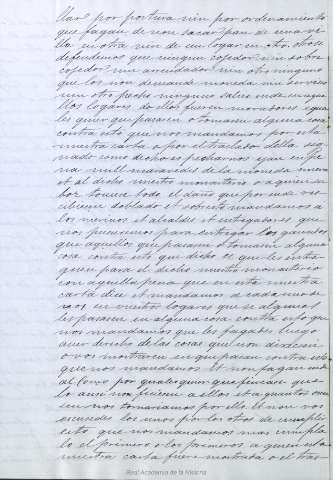 llar por postura nin por ordenamiento
que fagan de non sacar pan de una ve
lla en otra nin de un logar en otro. Otrosi
defendemos que ningun cojedor nin sobre
cojedor nin arrendador nin otro ninguno
que los non demande moneda nin servicio
nin otro pecho ninguno salvo ende en aque
llos logares do ellos fueren moradores e que
les quier que pasaren o tomaren alguna cosa
contra esto que nos mandamos por esta
nuestra carta o por el traslado della sig
nado como dicho es pecharnos y an en pe
na mill maravedis de la moneda nueva
et al dicho nuestro monasterio o a quien su
boz toviese todo el daño que por ende re
cibieren doblado et sobresto mandamos a
los merinos et alcaldes et entregadores que
nos pusiemos para entregar los
que aquellos que pasaren o tomaren alguna
cosa contra esto que dicho es que les entre
guen para el dicho nuestro monasterio
con aquella pena que en esta nuestra
carta dice et mandamos a cada uno de
vos en vuestros logares que si algunos
les pasaren en alguna cosa contra esto que
nos mandamos que les fagades luego
aver derecho de las cosas que
o vos mostraren en que pasan contra esto
que nos mandamos Et non fagan ende
al Como por qualesquier que fincase que
lo asi non ficiesen a ellos et a quantos oviesen
nos tornariamos por ello Et non vos
escusedes los unos por los otros de cumplir
esto que nos mandamos mas cumpla
lo el primero o los primeros a quien esta
nuestra carta fuere mostrada o el tras
Real Academia de la Historia